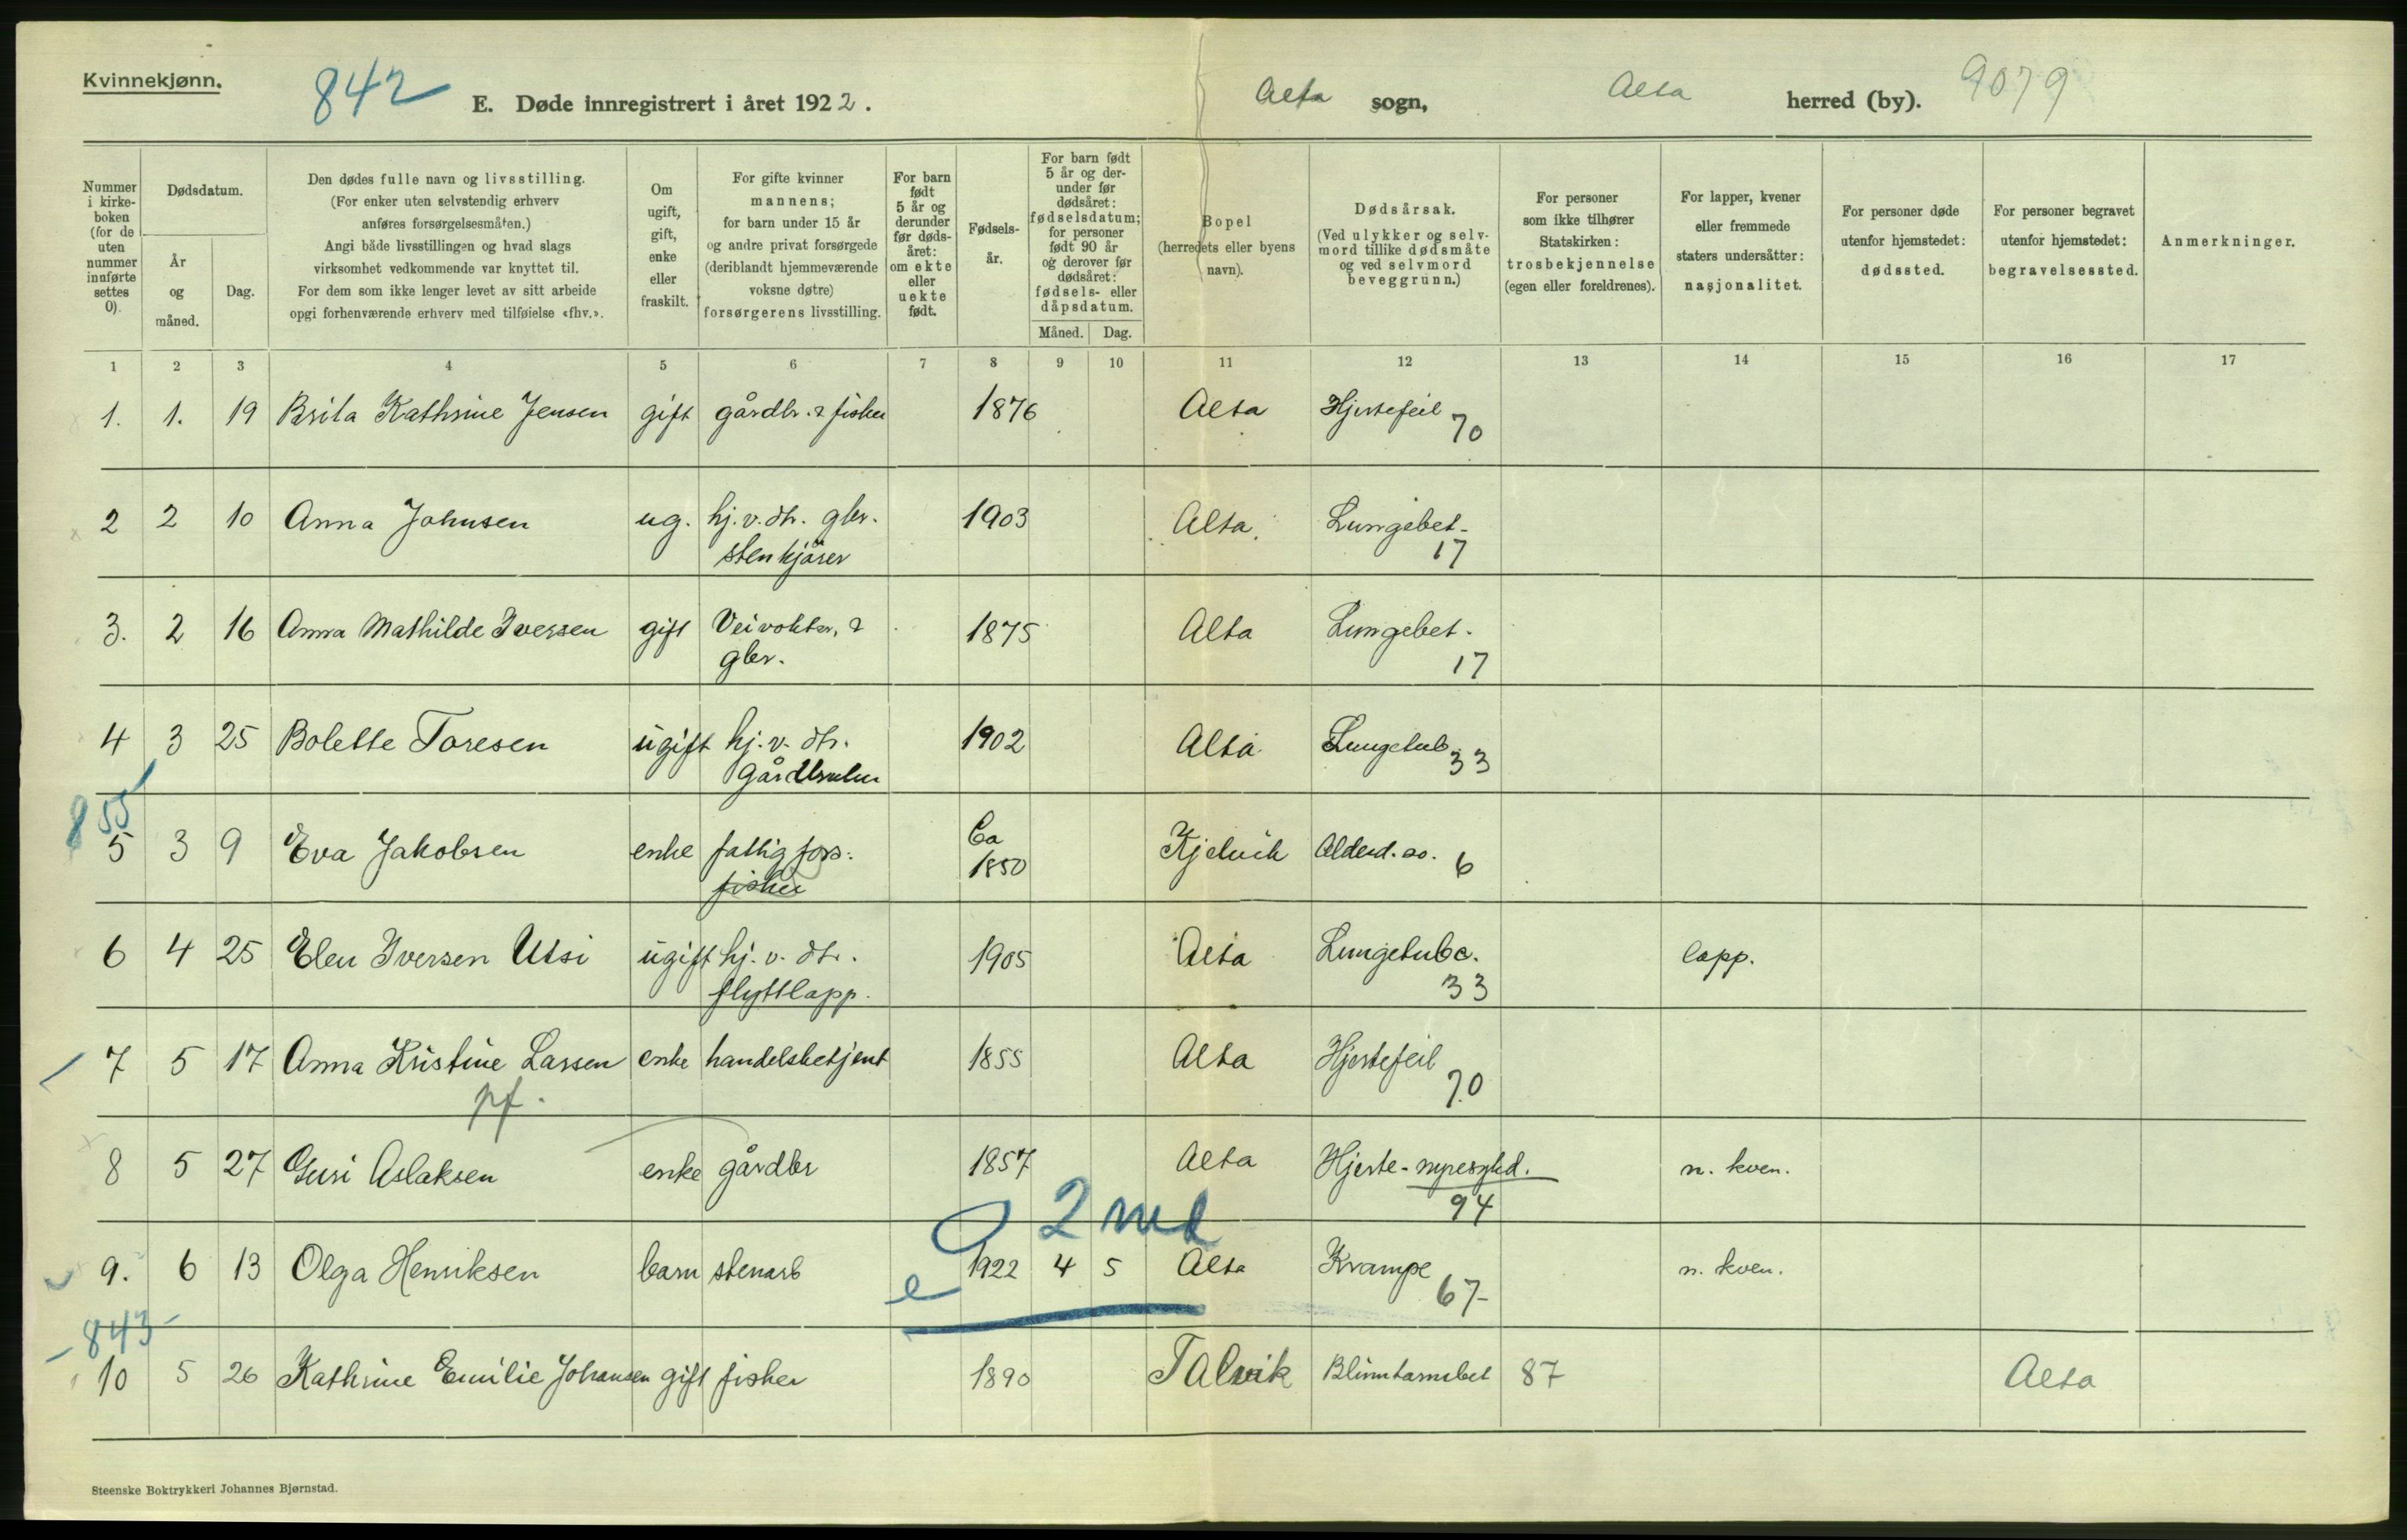 Kvinnekjønn.
842
E. Døde innregistrert i året 1922.
Alta sogn,
Alta herred (by).
9079
Nummer i kirkeboken (for de uten nummer innførte settes 0).
Dødsdatum.
År og måned.
Dag.
Den dødes fulle navn og livsstilling.
(For enker uten selvstendig erhverv
anføres forsørgelsesmåten.)
Angi både livsstillingen og hvad slags
virksomhet vedkommende var knyttet til.
For dem som ikke lenger levet av sitt arbeide
opgi forhenværende erhverv med tilføielse «fhv.».
Om ugift, gift, enke eller fraskilt.
For gifte kvinner
mannens;
for barn under 15 år
og andre privat forsørgede
(deriblandt hjemmeværende
voksne døtre)
forsørgerens livsstilling.
For barn født 5 år og derunder før dødsåret: om ekte eller uekte født.
Fødsels-
år.
For barn født 5 år og derunder før dødsåret: fødselsdatum; for personer født 90 år og derover før dødsåret: fødsels- eller dåpsdatum.
Måned. Dag.
Bopel
(herredets eller byens
navn).
Dødsårsak.
(Ved ulykker og selv-
mord tillike dødsmåte
og ved selvmord
beveggrunn.)
For personer
som ikke tilhører
Statskirken:
trosbekjennelse
(egen eller foreldrenes).
For lapper, kvener
eller fremmede
staters undersåtter:
nasjonalitet.
For personer døde
utenfor hjemstedet:
dødssted.
For personer begravet
utenfor hjemstedet:
begravelsessted.
Anmerkninger.
1 2 3 4 5 6 7 8 9 10 11 12 13 14 15 16 17
1. 1. 19 Brita Kathrine Jensen gift gårdbr. & fisker 1876 Alta Hjertefeil
70
2 2 10 Anna Johnsen ug. hj.v.dtr. gbr. 1903 Alta. Lungebet-
stenkjører 17
3. 2 16 Anna Mathilde Iversen gift Veivokter, & 1875 Alta Lungebet.
gbr. 17
4 3 25 Bolette Toresen ugift hj. v. dtr. 1902 Alta Lungetub.
Gårdbruker 33
855
5 3 9 Eva Jakobsen enke fattigfors. Ca 1850 Kjelvik Alderd. so. 6
fisker
6 4 25 Elen Iversen Utsi ugift hj. v. dtr. 1905 Alta Lungetubc. lapp.
flyttlapp. 33
7 5 17 Anna Kristine Larsen enke handelsbetjent 1855 Alta Hjertefeil
pf. 70
8 5 27 Guri Aslaksen enke gårdbr 1857 Alta Hjerte-nyresykd. n. kven.
94
2 md
9. 6 13 Olga Henriksen barn stenarb e 1922 4 5 Alta Krampe n. kven.
67
843
10 5 26 Kathrine Emilie Johansen gift fisker 1890 Talvik Blinntarmbet 87 Alta
Steenske Boktrykkeri Johannes Bjørnstad.